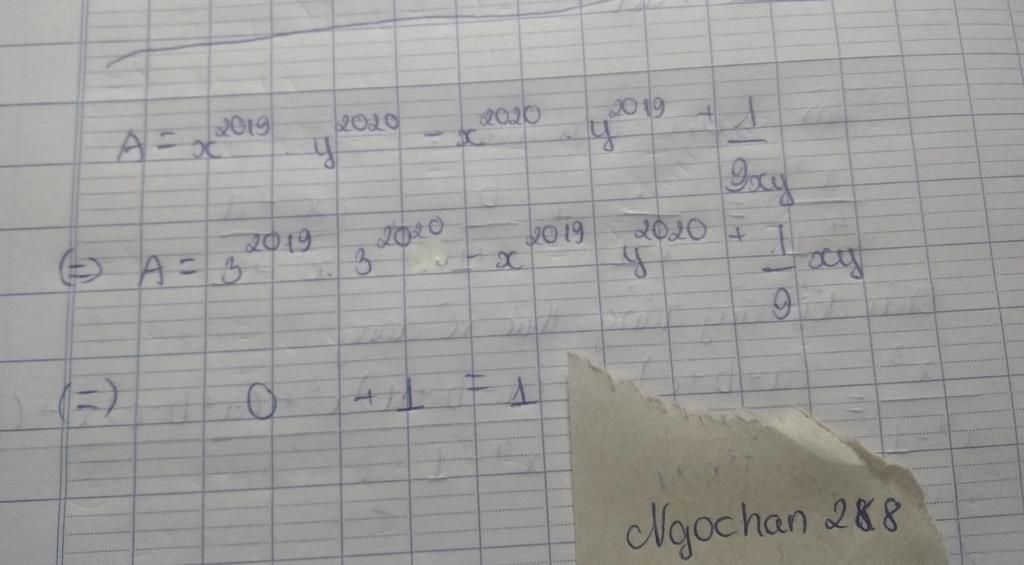 A = x^2019 . y^2020 - x^2020 . y^2019 + 1/9xy
(=) A = 3^2019 . 3^2020 - x^2019 y^2020 + 1/9 xy
(=) 0 + 1 = 1
Ngochan 288